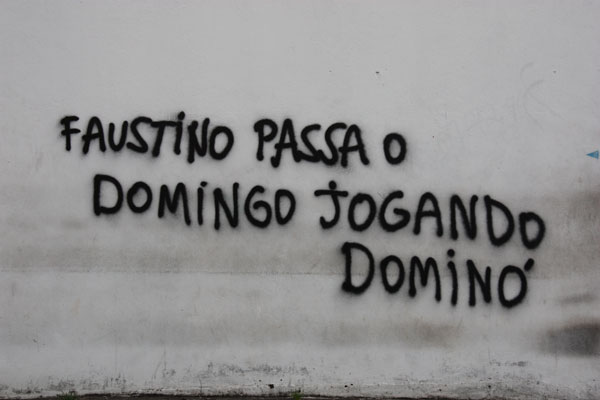 FAUSTINO PASSA O
DOMINGO JOGANDO
DOMINÓ